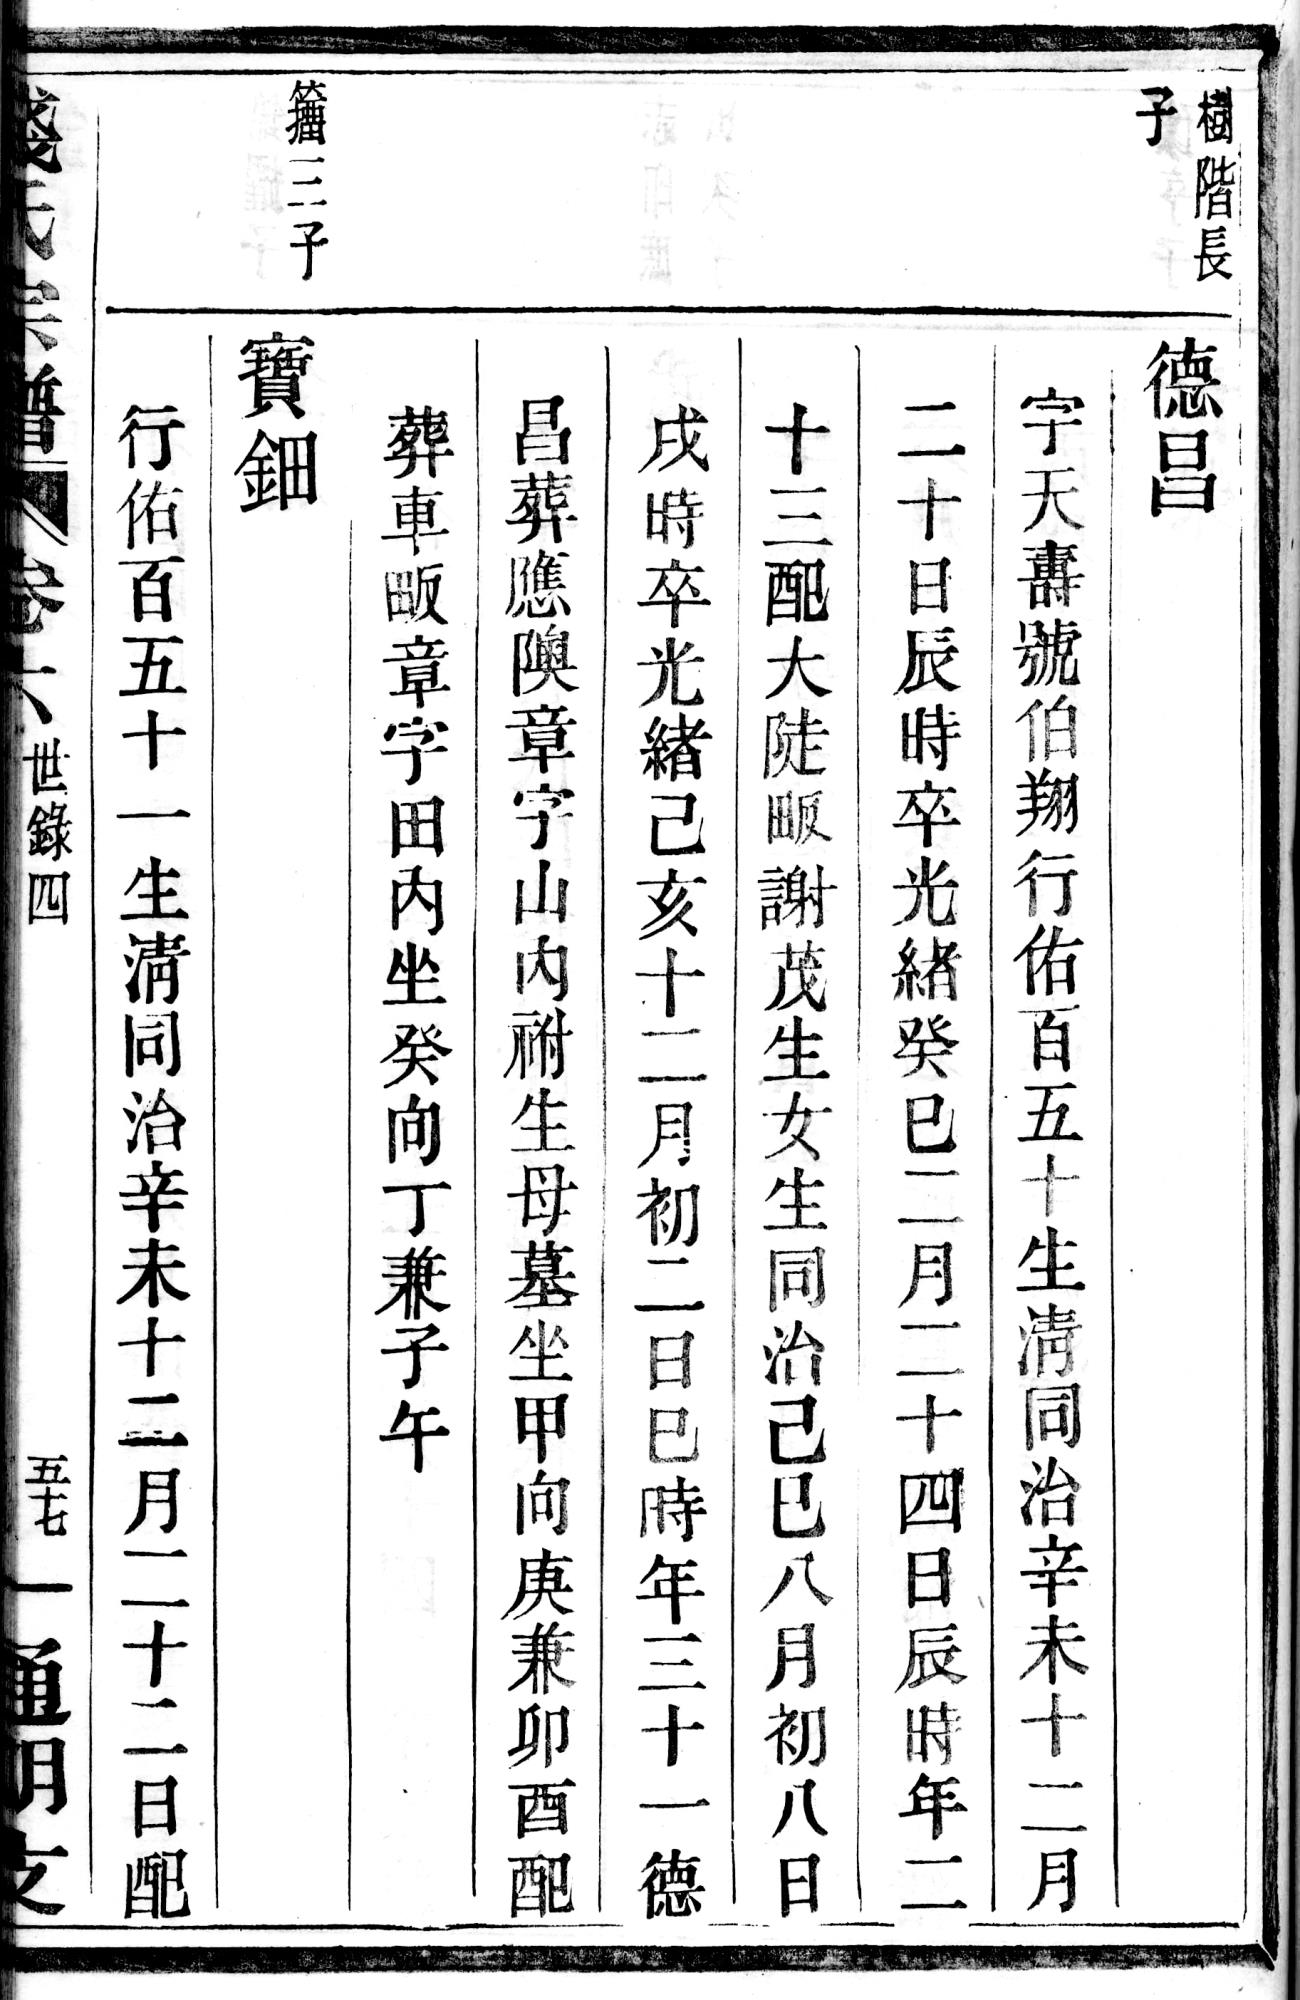 樹階長
子
德昌
字天壽號伯翔行佑百五十生淸同治辛未十二月
二十日辰時卒光緒癸巳二月二十四日辰時年二
十三配大陡畈謝茂生女生同治己巳八月初八日
戌時卒光緒己亥十二月初二日巳時年三十一德
昌葬應隩章字山內祔生母墓坐甲向庚兼卯酉配
葬車畈章字田內坐癸向丁兼子午
籀二子
寶鈿
行佑百五十一生淸同治辛未十二月二十二日配
錢氏宗譜 卷六 世錄四 五十七 一通明支